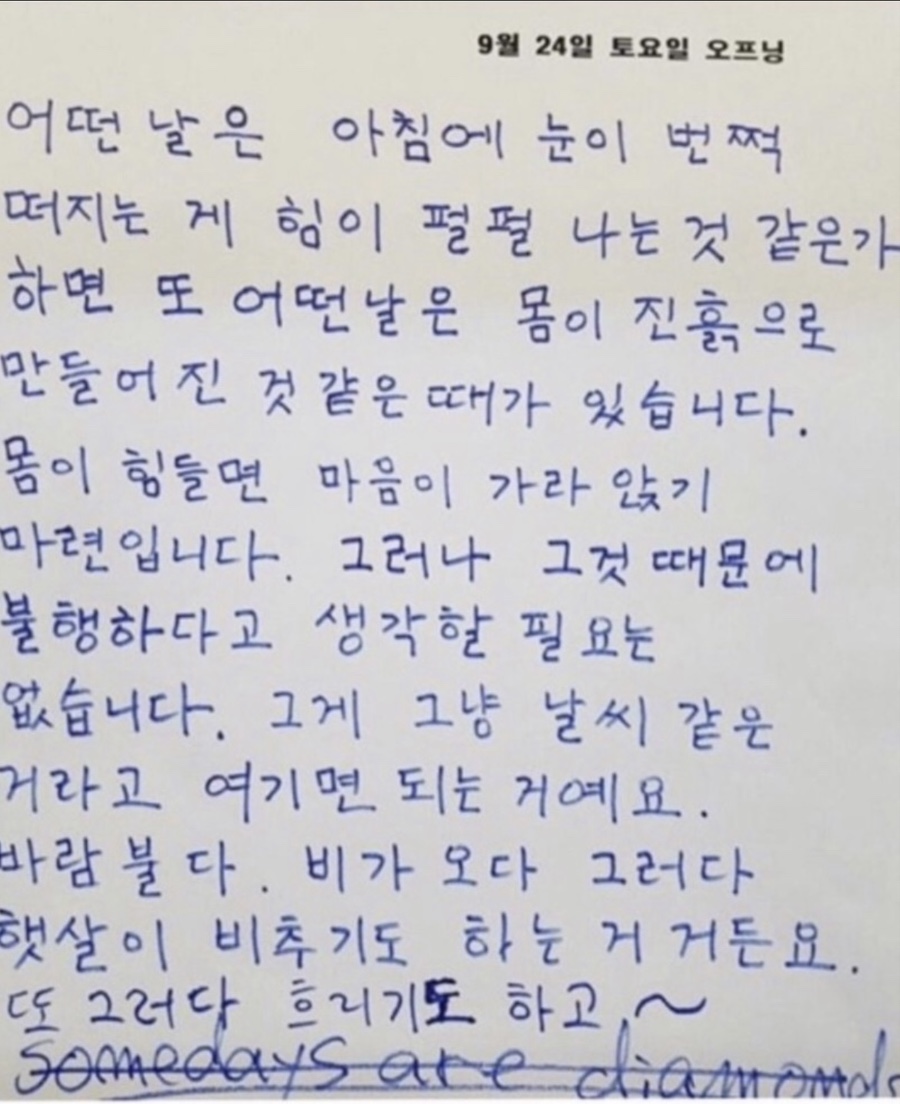 9월 24일 토요일 오프닝
어떤 날은 아침에 눈이 번쩍
떠지는 게 힘이 펄펄 나는 것 같은가
하면 또 어떤날은 몸이 진흙으로
만들어진 것 같은 때가 있습니다.
몸이 힘들면 마음이 가라앉기
마련입니다. 그러나 그것 때문에
불행하다고 생각할 필요는
없습니다. 그게 그냥 날씨 같은
거라고 여기면 되는 거예요.
바람 불다. 비가 오다 그러다
햇살이 비추기도 하는 거거든요.
또 그러다 흐리기도 하고,~
somedays are diamonds